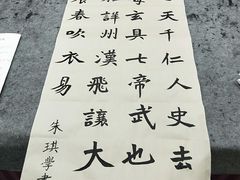 天千仁人史去
玄具七帝武也
詳州漢飛讓大
春吹衣易
朱琪學書